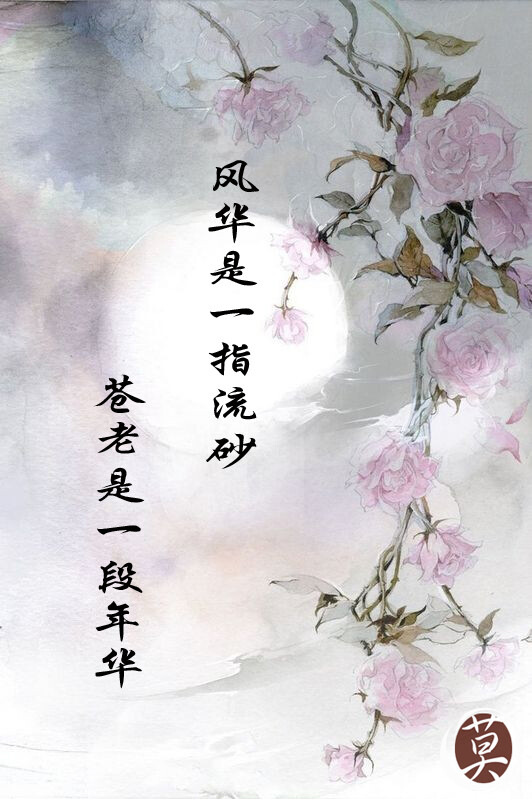 风华是一指流砂
苍老是一段年华
莫